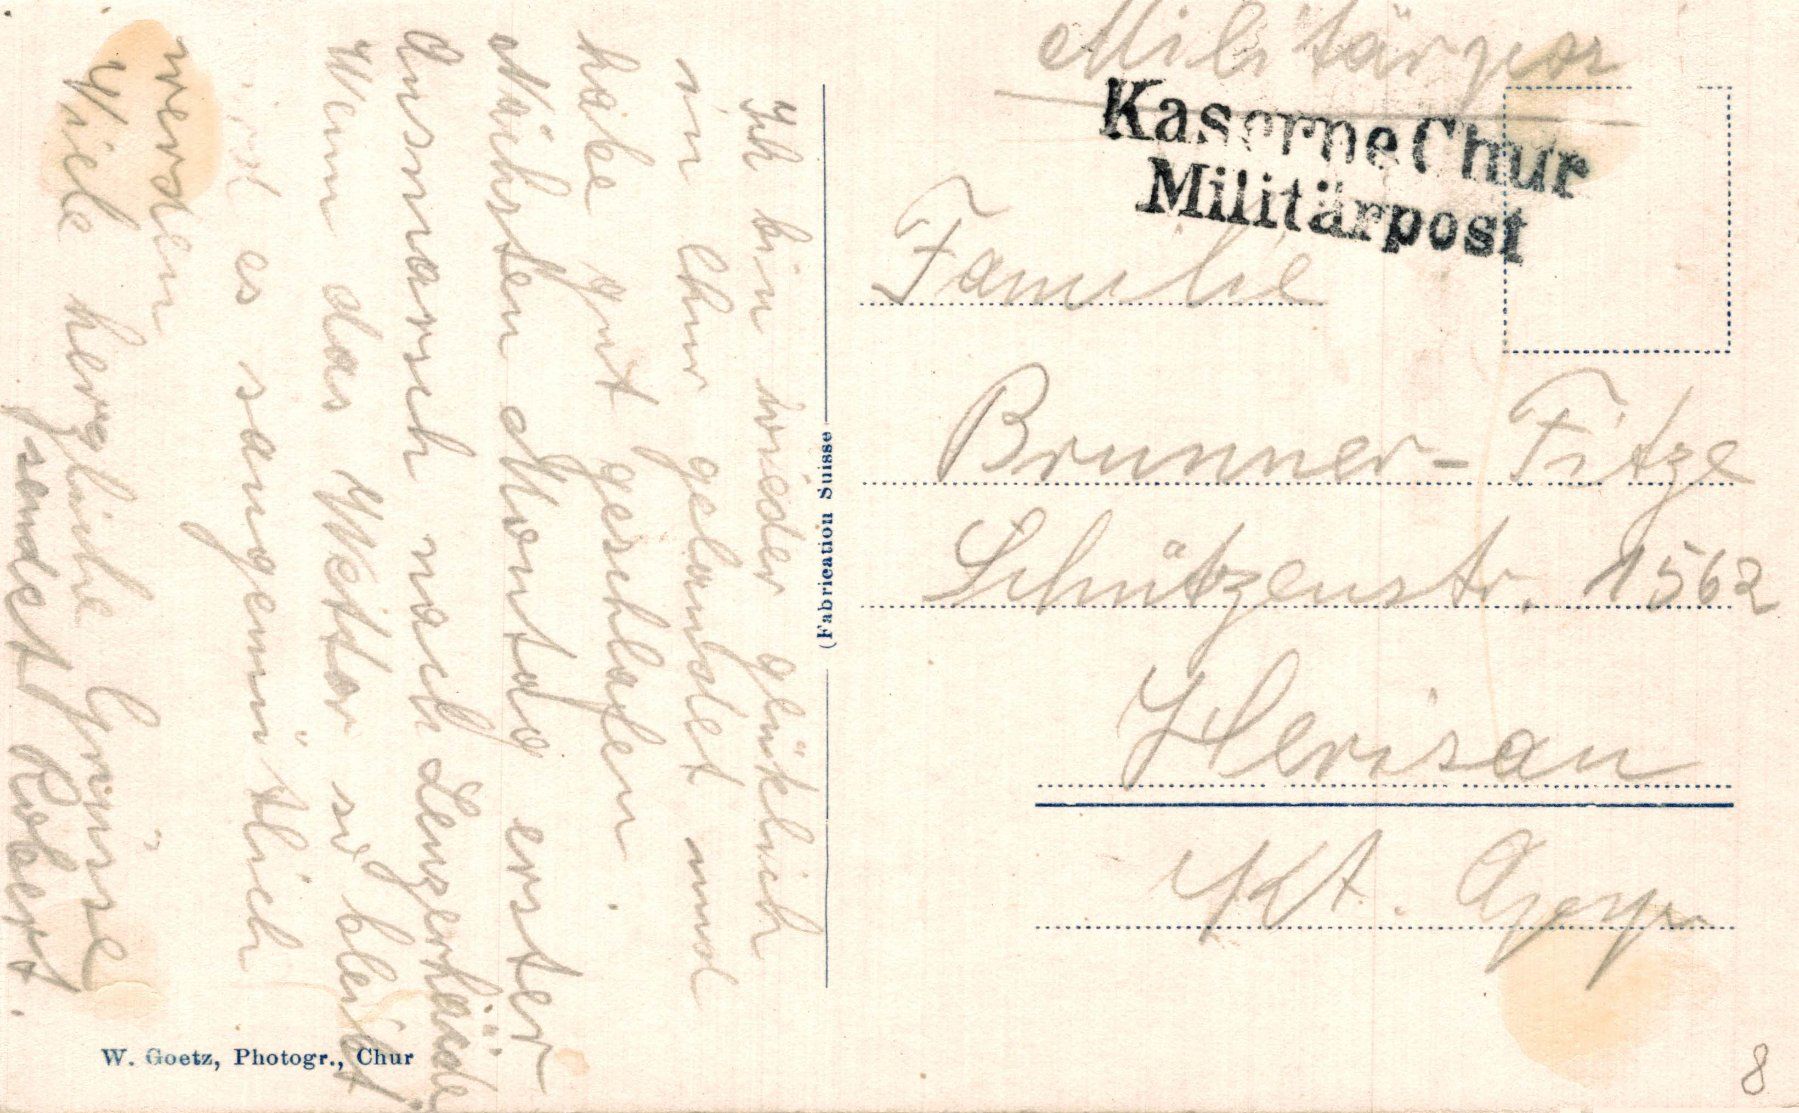 Ich bin wieder glücklich
in Chur gelandet und
habe gut geschlafen
Nächsten Montag erster
Ausmarsch nach Lenzerhaide.
Wenn das Wetter so bleibt
es sangemütlich
werden
Viele herzliche Grüsse
sendet Robert.
W. Goetz, Photogr., Chur
(Fabrication Suisse
Militärpos
Kaserne Chur
Militärpost
Familie
Brunner-Fitze
Schützenstr. 1562
Herisau
Kt. Appp
8